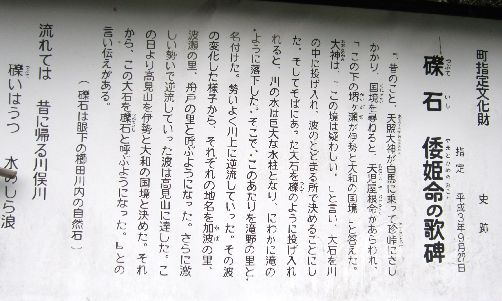 町指定文化財
史跡
礫石 倭姫命の歌碑
つぶて いし やまとひめのみこと
指定 平成3年9月27日
「昔のこと、天照大神が白馬に乗って珍峠にさし
かかり、国境を尋ねると、天児屋根命があらわれ、
「この下の堺ヶ瀬が伊勢と大和の国境」と答えた。
大神は、「この境は疑わしい。」と言い、大石を川
の中に投げ入れ、波のとどまる所で決めることにし
た。そしてそばにあった大石を礫のように投げ入れ
れると、川の水は巨大な水柱となり、にわかに滝の
ように落下した。そこで、このあたりを滝野の里と
名付けた。勢いよく川上に逆流していった。その波
の変化した様子から、それぞれの地名を加波の里、
波瀬の里、舟戸の里と呼ぶようになった。さらに激
しい勢いで逆流していった波は高見山に達した。こ
の日より高見山を伊勢と大和の国境と決めた。それ
から、この大石を礫石と呼ぶようになった。」との
言い伝えがある。
(礫石は眼下の櫛田川内の自然石)
流れては 昔に帰る川俣川
礫いはうつ 水のしら浪